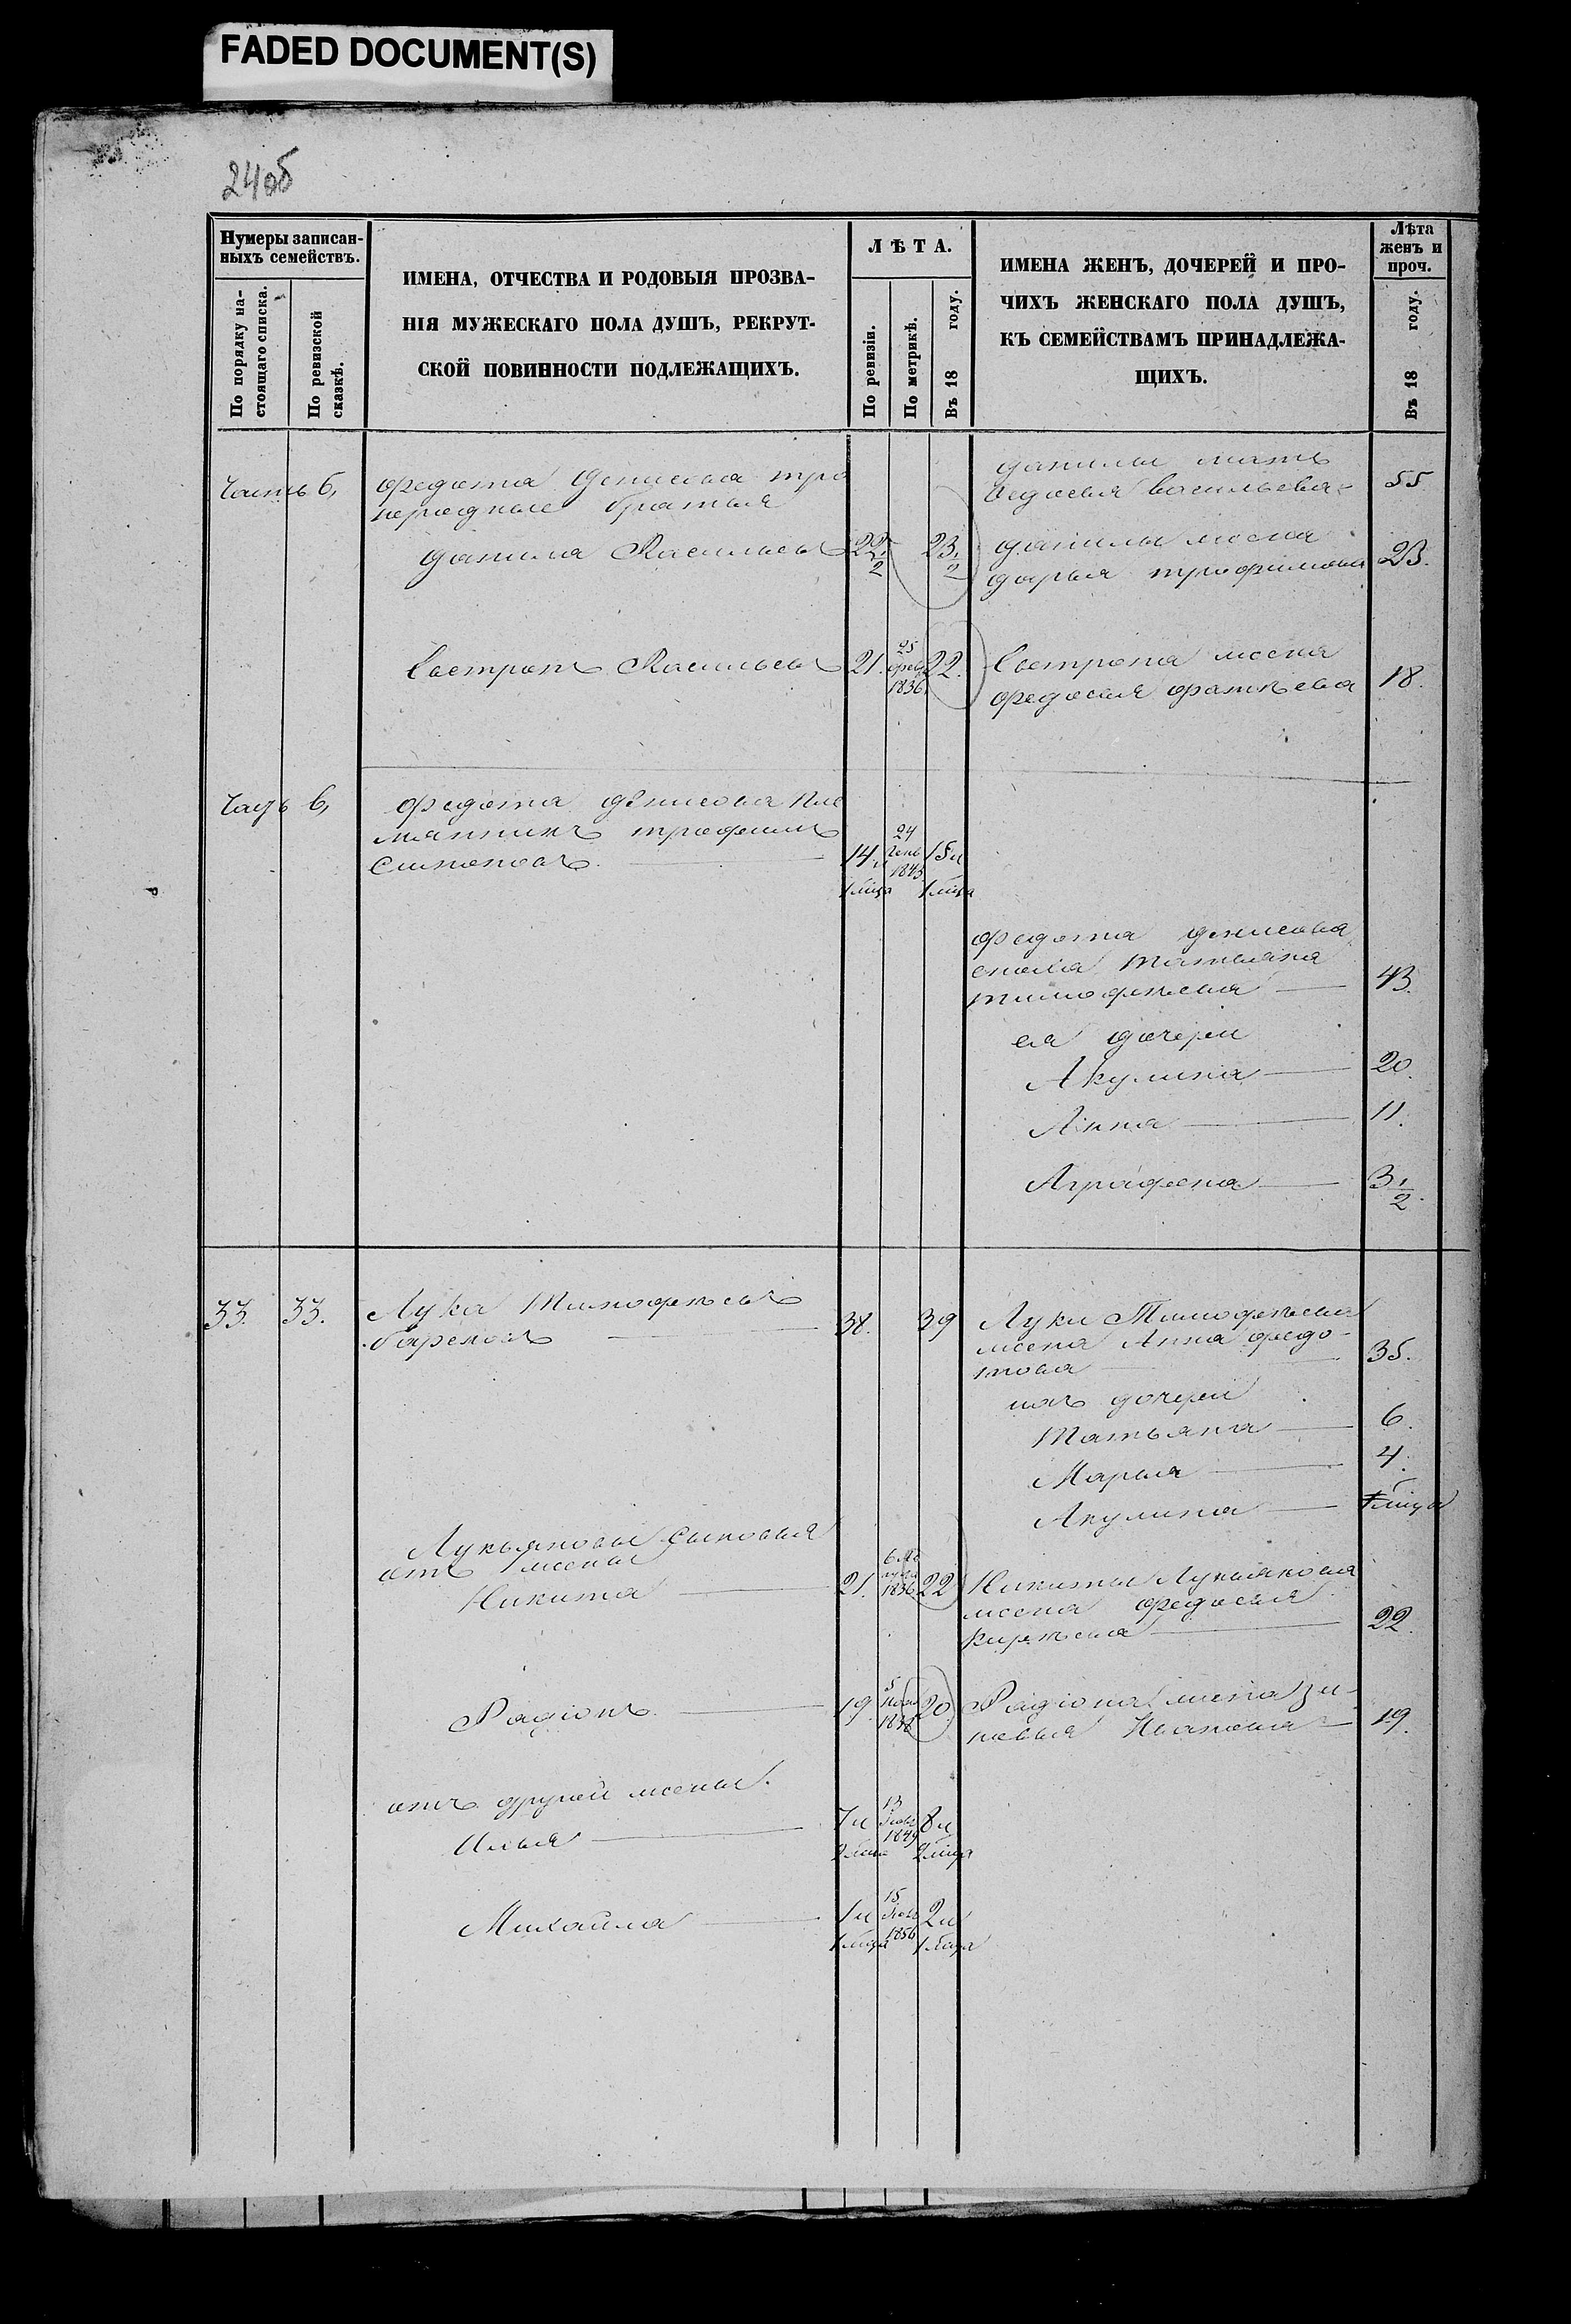 FADED DOCUMENT(S)
24об
Нумеры записан-
ныхъ семействъ.
По порядку на-
стоящаго списка.
По ревизской
сказкѣ.
ИМЕНА, ОТЧЕСТВА И РОДОВЫЯ ПРОЗВА-
НІЯ МУЖЕСКАГО ПОЛА ДУШЪ, РЕКРУТ-
СКОЙ ПОВИННОСТИ ПОДЛЕЖАЩИХЪ.
ЛѢТА.
По ревизіи.
По метрикѣ.
Въ 18 году.
ИМЕНА ЖЕНЪ, ДОЧЕРЕЙ И ПРО-
ЧИХЪ ЖЕНСКАГО ПОЛА ДУШЪ,
КЪ СЕМЕЙСТВАМЪ ПРИНАДЛЕЖА-
ЩИХЪ.
Лѣта
женъ и
проч.
Въ 18 году.
Часть 6,
Федота Денисова тро
юродные братья
Данила Васильевъ 22 1/2 23 1/2
Данилы мать
Федосья Васильева 55
Данилы жена
Дарья Трофимова 23.
Евстратъ Васильевъ 21. 25 Февр 1836 22.
Евстрата жена
Федосья Фатѣева 18.
Часть 6,
Федота Денисова Пле
мянникъ Трофимъ
Симоновъ 14 и 1 мца 24 1843 15 и 1 мца
Федота Денисова
сноха Татьяна
Тимофѣева 43.
ея дочери
Акулина 20.
Анна 11.
Аграфена 3 1/2.
33. 33. Лука Тимофѣевъ
38. 39
Луки Тимофѣева
жена Анна Федо-
това 35.
ихъ дочери
Татьяна 6.
Марья 4.
Акулина мца
Лукьяновы сыновья
отъ жены
Никита 21. 6 1836 22
Никиты Лукьянова
жена Федосья
Кирѣева 22.
Радіонъ 19. 5 Нояб 1838 20.
Радіона жена Зи-
новья Иванова 19.
отъ другой жены.
Илья 7 и 2 мца 13 1849 8 и 2 мца
Михайла 1 и 1 мца 15 Нояб 1856 2 и 1 мца